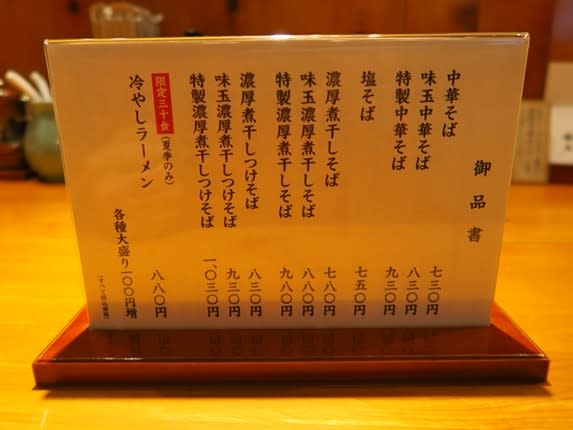 御品書
中華そば 七三〇円
味玉中華そば 八三〇円
特製中華そば 九三〇円
塩そば 七五〇円
濃厚煮干しそば 七八〇円
味玉濃厚煮干しそば 八八〇円
特製濃厚煮干しそば 九八〇円
濃厚煮干しつけそば 八三〇円
味玉濃厚煮干しつけそば 九三〇円
特製濃厚煮干しつけそば 一、〇三〇円
限定三十食(夏季のみ)
冷やしラーメン 八八〇円
各種大盛り一〇〇円増
(すべて税込価格)